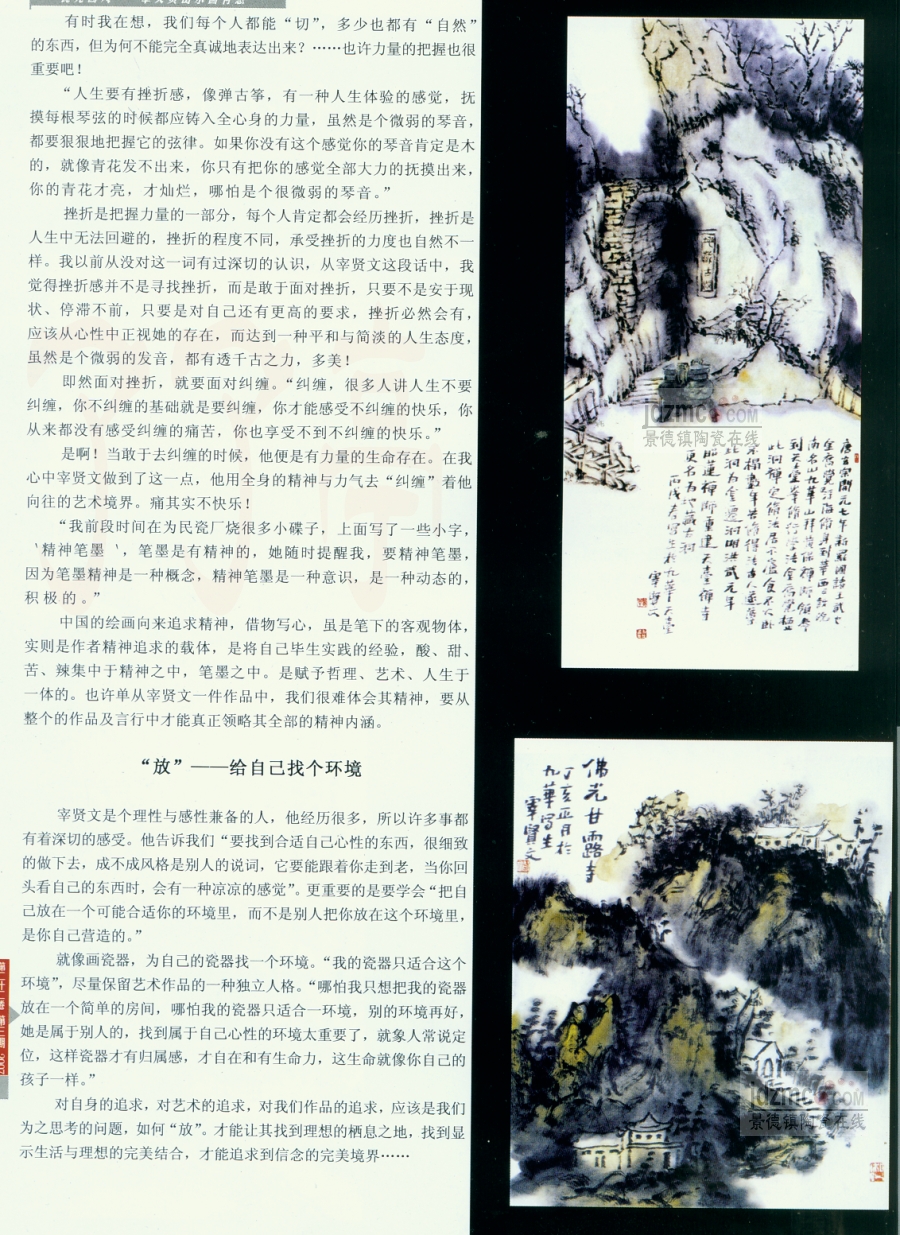 有时我在想，我们每个人都能“切”，多少也都有“自然”
的东西，但为何不能完全真诚地表达出来？……也许力量的把握也很
重要吧！
“人生要有挫折感，像弹古筝，有一种人生体验的感觉，抚
摸每根琴弦的时候都应铸入全心身的力量，虽然是个微弱的琴音，
都要狠狠地把握它的弦律。如果你没有这个感觉你的琴音肯定是木
的，就像青花发不出来，你只有把你的感觉全部大力的抚摸出来，
你的青花才亮，才灿烂，哪怕是个很微弱的琴音。”
挫折是把握力量的一部分，每个人肯定都会经历挫折，挫折是
人生中无法回避的，挫折的程度不同，承受挫折的力度也自然不一
样。我以前从没对这一词有过深切的认识，从宰贤文这段话中，我
觉得挫折感并不是寻找挫折，而是敢于面对挫折，只要不是安于现
状、停滞不前，只要是对自己还有更高的要求，挫折必然会有，
应该从心性中正视她的存在，而达到一种平和与简淡的人生态度，
虽然是个微弱的发音，都有透千古之力，多美！
即然面对挫折，就要面对纠缠。“纠缠，很多人讲人生不要
纠缠，你不纠缠的基础就是要纠缠，你才能感受不纠缠的快乐，你
从来都没有感受纠缠的痛苦，你也享受不到不纠缠的快乐。”
是啊！当敢于去纠缠的时候，他便是有力量的生命存在。在我
心中宰贤文做到了这一点，他用全身的精神与力气去“纠缠”着他
向往的艺术境界。痛其实不快乐！
“我前段时间在为民瓷厂烧很多小碟子，上面写了一些小字，
‵精神笔墨‵，笔墨是有精神的，她随时提醒我，要精神笔墨，
因为笔墨精神是一种概念，精神笔墨是一种意识，是一种动态的，
积极的。”
中国的绘画向来追求精神，借物写心，虽是笔下的客观物体，
实则是作者精神追求的载体，是将自己毕生实践的经验，酸、甜、
苦、辣集中于精神之中，笔墨之中。是赋予哲理、艺术、人生于
一体的。也许单从宰贤文一件作品中，我们很难体会其精神，要从
整个的作品及言行中才能真正领略其全部的精神内涵。
“放”——给自己找个环境
宰贤文是个理性与感性兼备的人，他经历很多，所以许多事都
有着深切的感受。他告诉我们“要找到合适自己心性的东西，很细致
的做下去，成不成风格是别人的说词，它要能跟着你走到老，当你回
头看自己的东西时，会有一种凉凉的感觉”。更重要的是要学会“把自
己放在一个可能合适你的环境里，而不是别人把你放在这个环境里，
是你自己营造的。”
就像画瓷器，为自己的瓷器找一个环境。“我的瓷器只适合这个
环境”，尽量保留艺术作品的一种独立人格。“哪怕我只想把我的瓷器
放在一个简单的房间，哪怕我的瓷器只适合一环境，别的环境再好，
她是属于别人的，找到属于自己心性的环境太重要了，就象人常说定
位，这样瓷器才有归属感，才自在和有生命力，这生命就像你自己的
孩子一样。”
对自身的追求，对艺术的追求，对我们作品的追求，应该是我们
为之思考的问题，如何“放”。才能让其找到理想的栖息之地，找到显
示生活与理想的完美结合，才能追求到信念的完美境界……
jdzmc.COM
景德镇陶瓷在线
唐玄宗開元七年新羅國
南名山九華山拜
到天臺峯修行
此洞禪定修法
此洞為金 洞明洪武元年
昭蓮禪師重建天臺禪寺
更名為地藏古洞
丙戌春寫生於九華天臺
宰賢文
佛光甘露寺
丁亥正月於
九華寫生
宰賢文
jdzmc.COM
景德镇陶瓷在线